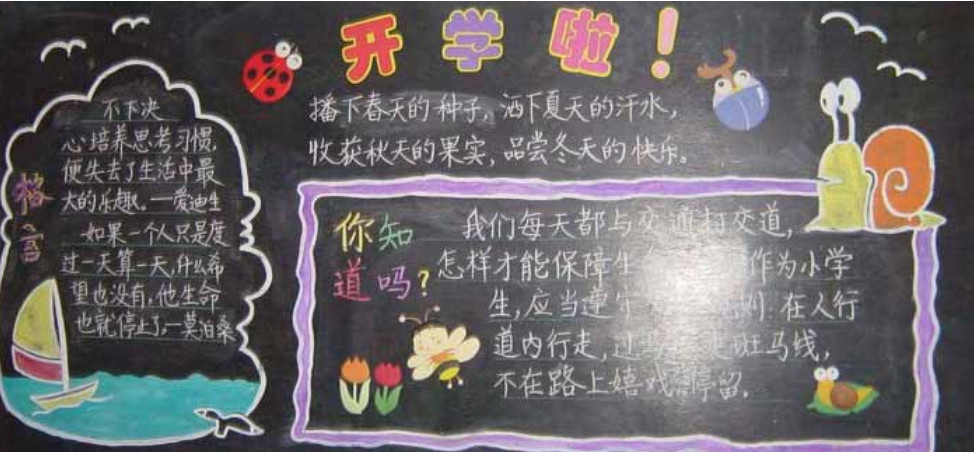 开学啦！
播下春天的种子，洒下夏天的汗水，
收获秋天的果实，品尝冬天的快乐。
格言
不下决
心培养思考习惯，
便失去了生活中最
大的乐趣。一爱迪生
如果一个人只是度
过一天算一天，什么希
望也没有，他生命
也就停止了，一莫泊桑
你知
道吗？
我们每天都与交通打交道，
怎样才能保障 作为小学
生，应当遵守 在人行
道内行走，过 斑马线，
不在路上嬉戏 停留。